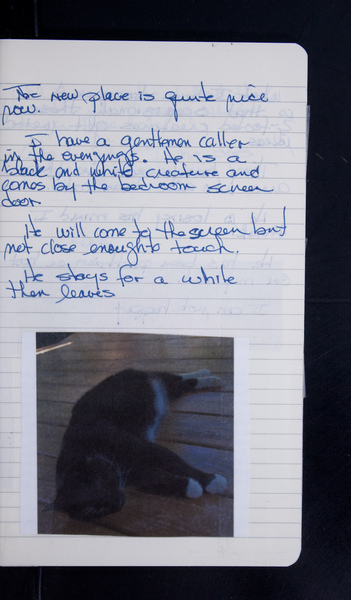 The new place is quite nice
now.
I have a gentleman caller
in the evenings. He is a
black and white creature and
comes by the bedroom screen
door
He will come to the screen but
not close enough to touch.
He stays for a while
then leaves